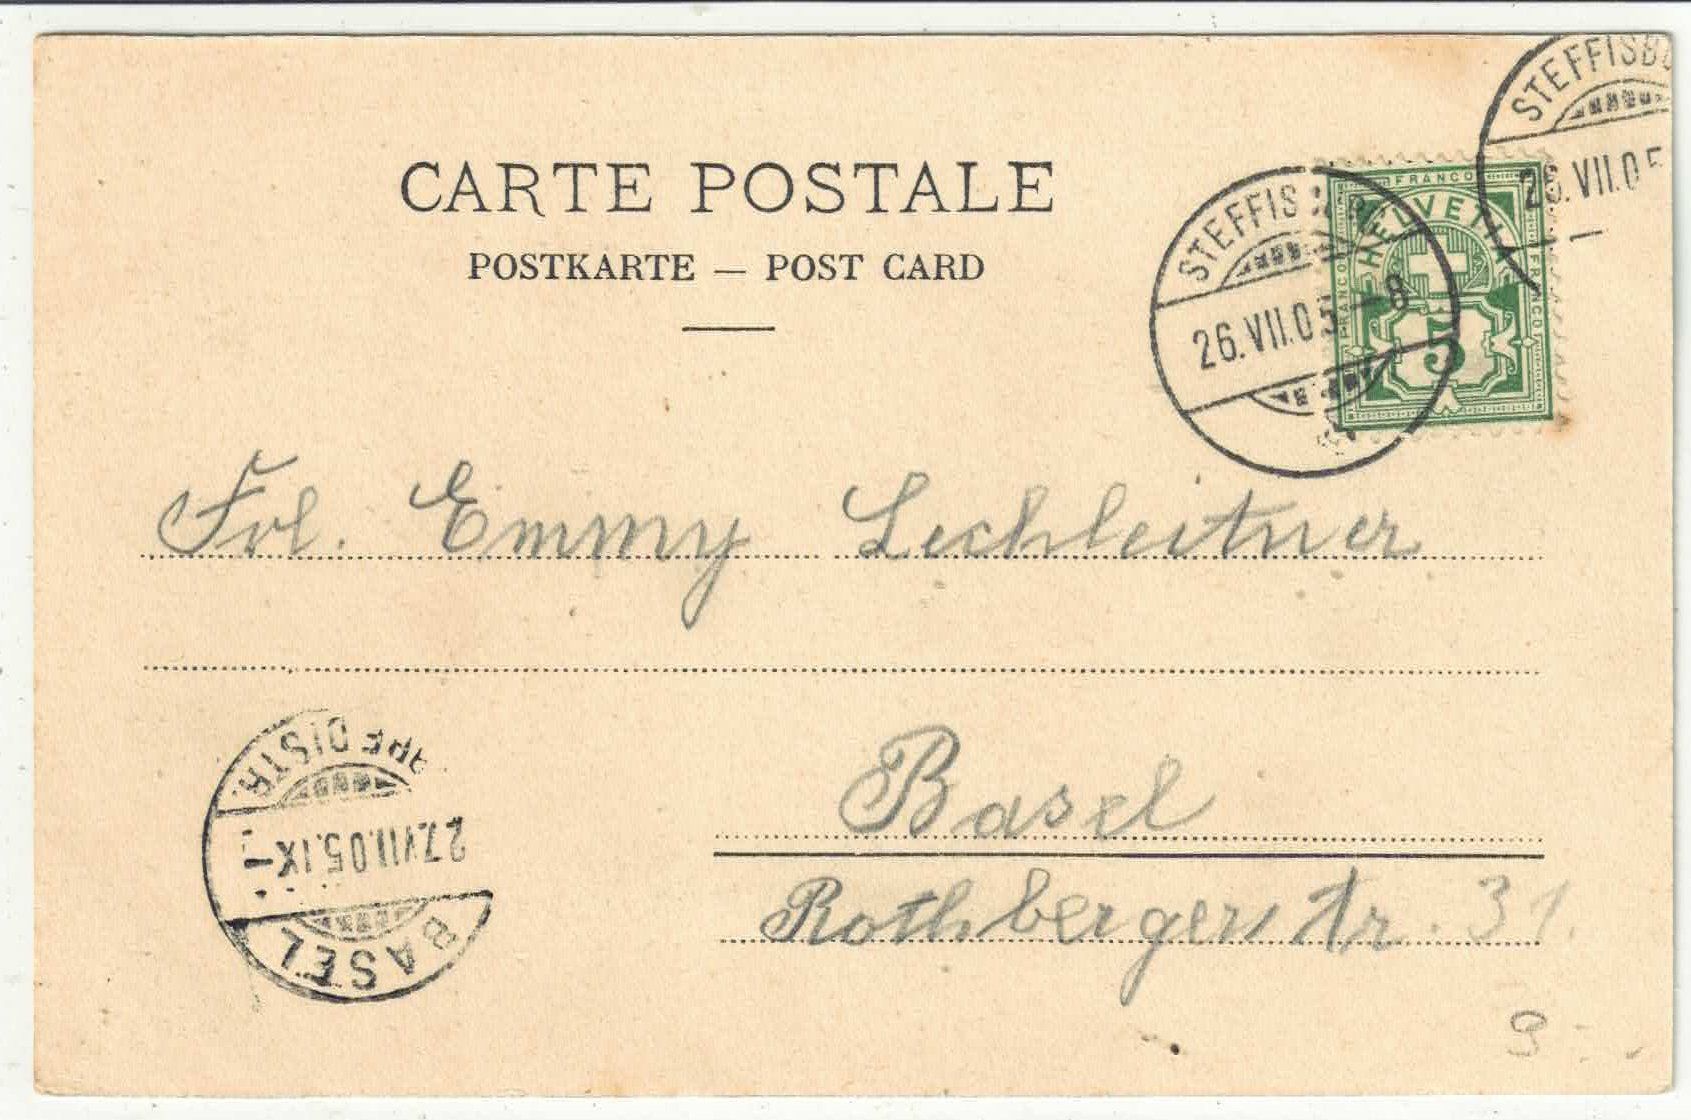 CARTE POSTALE
POSTKARTE — POST CARD
STEFFISBU
26.VII.05
STEFFISBURG
26.VII.05–8
FRANCO
HELVETIA
FRANCO
FRANCO
5
Frl. Emmy Lechleitner
Basel
Rothbergerstr. 31.
BASEL
27.VII.05.IX–
DISTR.
9 -